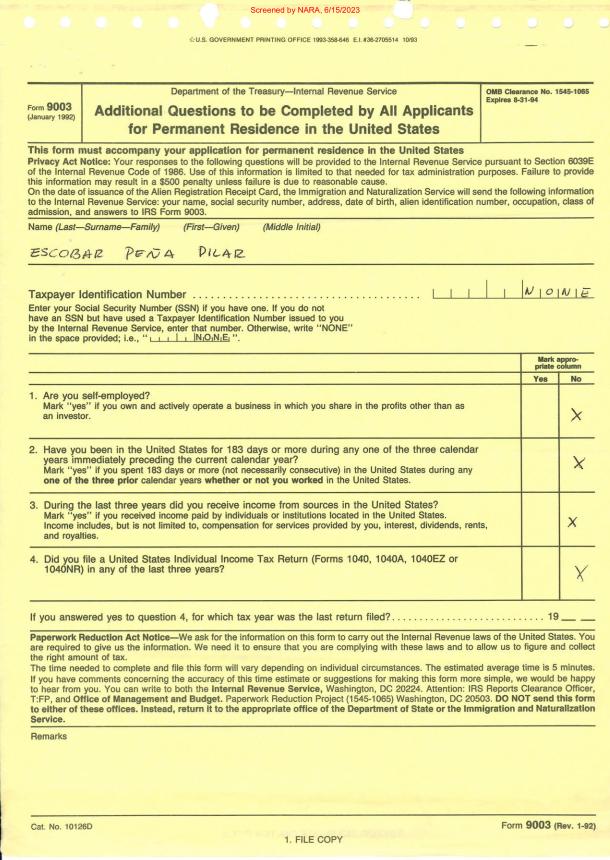 Screened by NARA, 6/15/2023
☆U.S. GOVERNMENT PRINTING OFFICE 1993-358-646 E.I. #36-2705514 10/93
Form 9003
(January 1992)
Department of the Treasury—Internal Revenue Service
Additional Questions to be Completed by All Applicants
for Permanent Residence in the United States
OMB Clearance No. 1545-1065
Expires 8-31-94
This form must accompany your application for permanent residence in the United States
Privacy Act Notice: Your responses to the following questions will be provided to the Internal Revenue Service pursuant to Section 6039E
of the Internal Revenue Code of 1986. Use of this information is limited to that needed for tax administration purposes. Failure to provide
this information may result in a $500 penalty unless failure is due to reasonable cause.
On the date of issuance of the Alien Registration Receipt Card, the Immigration and Naturalization Service will send the following information
to the Internal Revenue Service: your name, social security number, address, date of birth, alien identification number, occupation, class of
admission, and answers to IRS Form 9003.
Name (Last—Surname—Family) (First—Given) (Middle Initial)
ESCOBAR PEÑA DILAR
Taxpayer Identification Number . . . . . . . . . . . . . . . . . . . . . . . . . . . . . . . . . . . . . . . . N O N E
Enter your Social Security Number (SSN) if you have one. If you do not
have an SSN but have used a Taxpayer Identification Number issued to you
by the Internal Revenue Service, enter that number. Otherwise, write "NONE"
in the space provided; i.e., "| | | | |N|O|N|E|".
Mark appro-
priate column
Yes No
1. Are you self-employed?
Mark "yes" if you own and actively operate a business in which you share in the profits other than as
an investor. X
2. Have you been in the United States for 183 days or more during any one of the three calendar
years immediately preceding the current calendar year? X
Mark "yes" if you spent 183 days or more (not necessarily consecutive) in the United States during any
one of the three prior calendar years whether or not you worked in the United States.
3. During the last three years did you receive income from sources in the United States?
Mark "yes" if you received income paid by individuals or institutions located in the United States.
Income includes, but is not limited to, compensation for services provided by you, interest, dividends, rents, X
and royalties.
4. Did you file a United States Individual Income Tax Return (Forms 1040, 1040A, 1040EZ or
1040NR) in any of the last three years? X
If you answered yes to question 4, for which tax year was the last return filed? . . . . . . . . . . . . . . . . . . . . . . . . . . 19 __ __
Paperwork Reduction Act Notice—We ask for the information on this form to carry out the Internal Revenue laws of the United States. You
are required to give us the information. We need it to ensure that you are complying with these laws and to allow us to figure and collect
the right amount of tax.
The time needed to complete and file this form will vary depending on individual circumstances. The estimated average time is 5 minutes.
If you have comments concerning the accuracy of this time estimate or suggestions for making this form more simple, we would be happy
to hear from you. You can write to both the Internal Revenue Service, Washington, DC 20224. Attention: IRS Reports Clearance Officer,
T:FP, and Office of Management and Budget. Paperwork Reduction Project (1545-1065) Washington, DC 20503. DO NOT send this form
to either of these offices. Instead, return it to the appropriate office of the Department of State or the Immigration and Naturalization
Service.
Remarks
Cat. No. 10126D
Form 9003 (Rev. 1-92)
1. FILE COPY